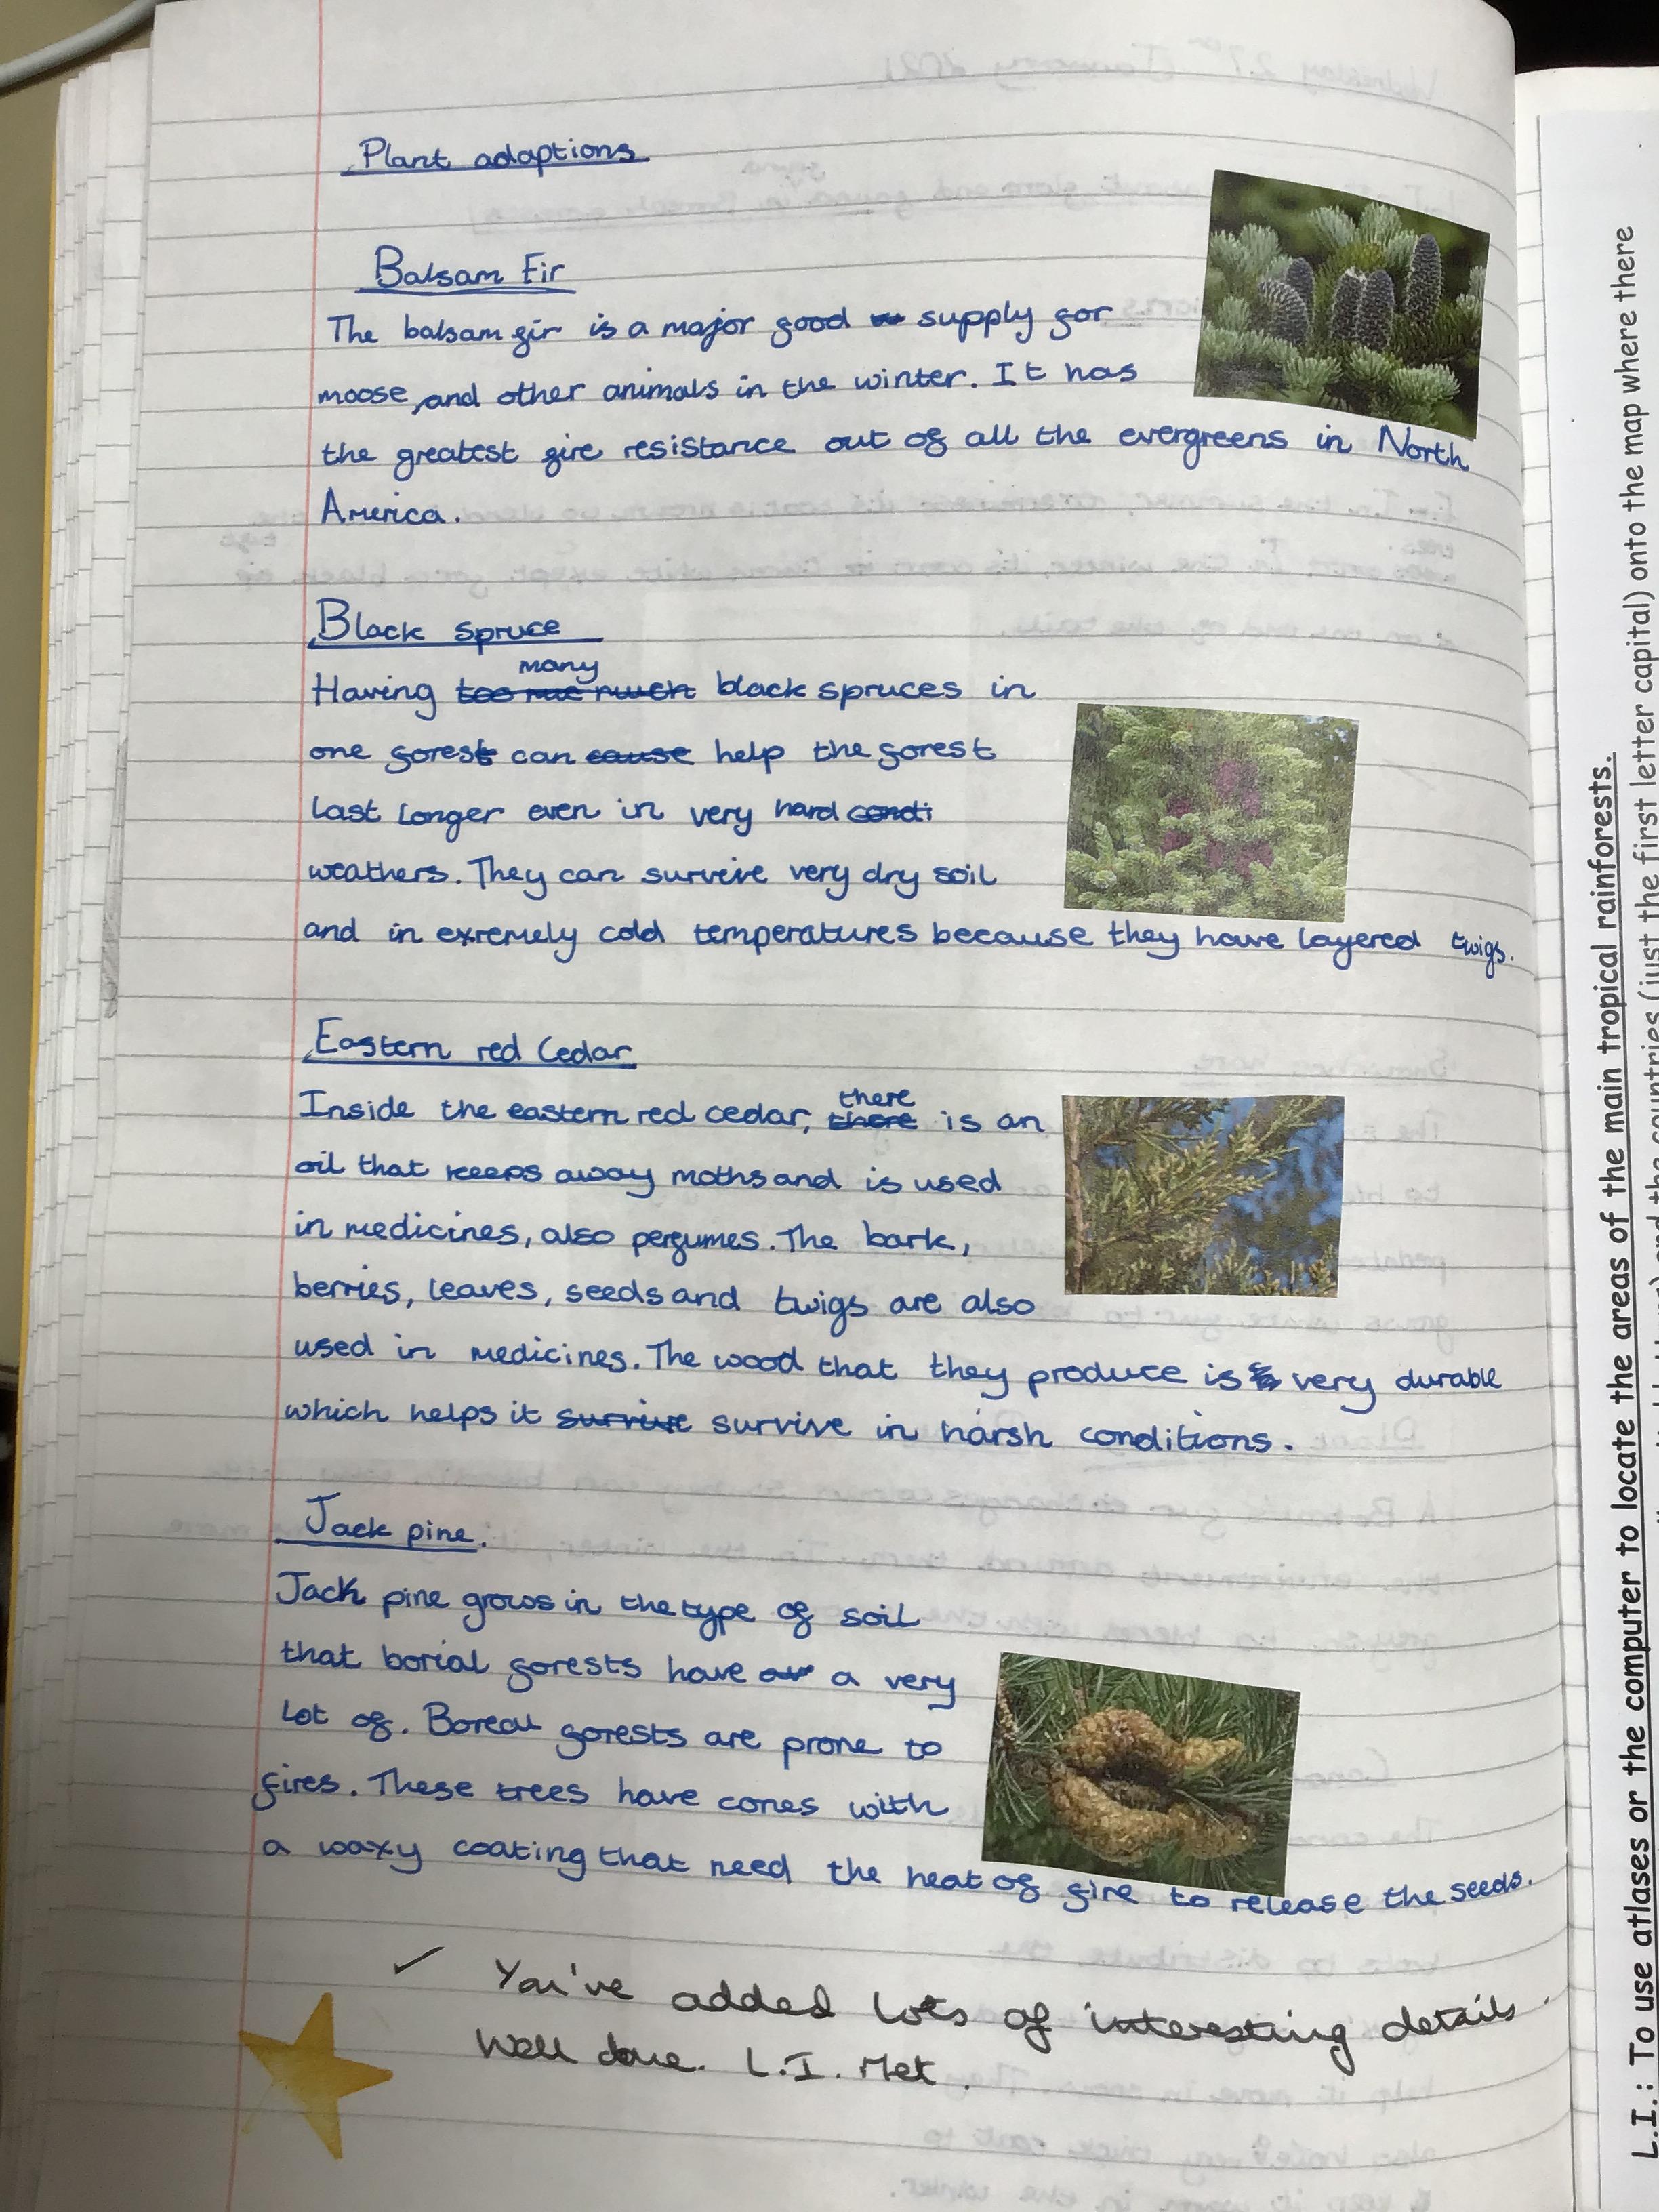 Plant adaptions
Balsam Fir
The balsam fir is a major food supply for
moose, and other animals in the winter. It has
the greatest fire resistance out of all the evergreens in North
America.
Black spruce
many
Having too much black spruces in
one forest can cause help the forest
last longer even in very hard condi
weathers. They can survive very dry soil
and in exremely cold temperatures because they have layered twigs.
Eastern red Cedar
there
Inside the eastern red cedar, there is an
oil that keeps away moths and is used
in medicines, also perfumes. The bark,
berries, leaves, seeds and twigs are also
used in medicines. The wood that they produce is very durable
which helps it survive survive in harsh conditions.
Jack pine.
Jack pine grows in the type of soil
that borial forests have a very
lot of. Boreal forests are prone to
fires. These trees have cones with
a waxy coating that need the heat of fire to release the seeds.
✓ You've added lots of interesting details.
Well done. L.I. Met.
L.I.: To use atlases or the computer to locate the areas of the main tropical rainforests.
(just the first letter capital) onto the map where there